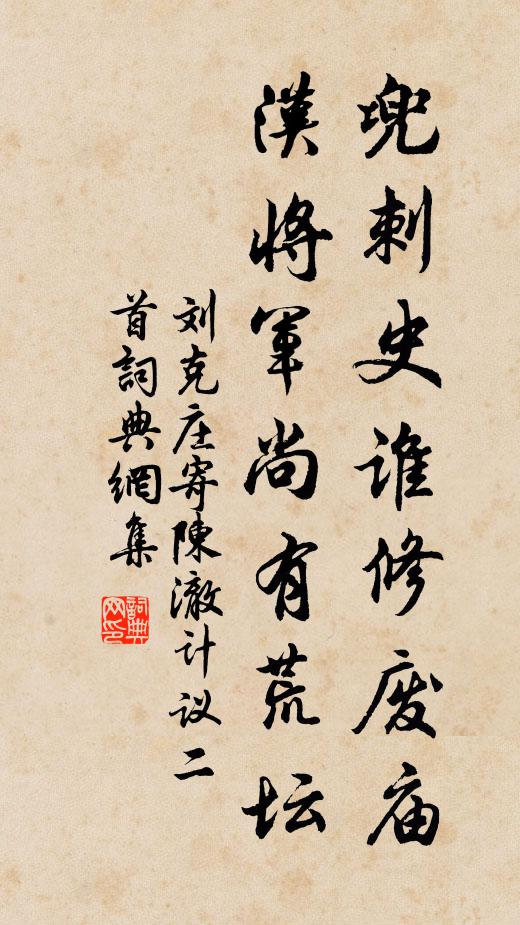 兜刺史谁修废庙
漢将軍尚有荒坛
刘克庄寄陳澈计议二
首詞典網集
詞典网印